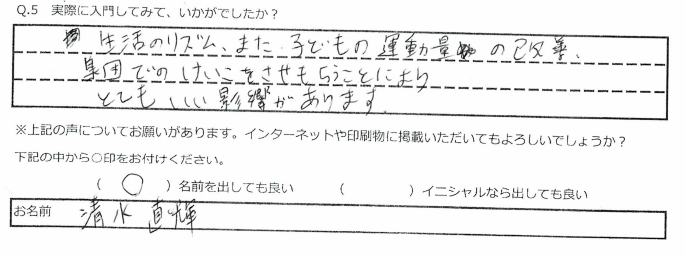 Q.5 実際に入門してみて、いかがでしたか？
生活のリズム、また子どもの運動量の改善、
集団でのけいこをさせもらうことにより
とてもいい影響があります。
※上記の声についてお願いがあります。インターネットや印刷物に掲載いただいてもよろしいでしょうか？
下記の中から○印をお付けください。
（ ○ ）名前を出しても良い （ ）イニシャルなら出しても良い
お名前 清水 直輝